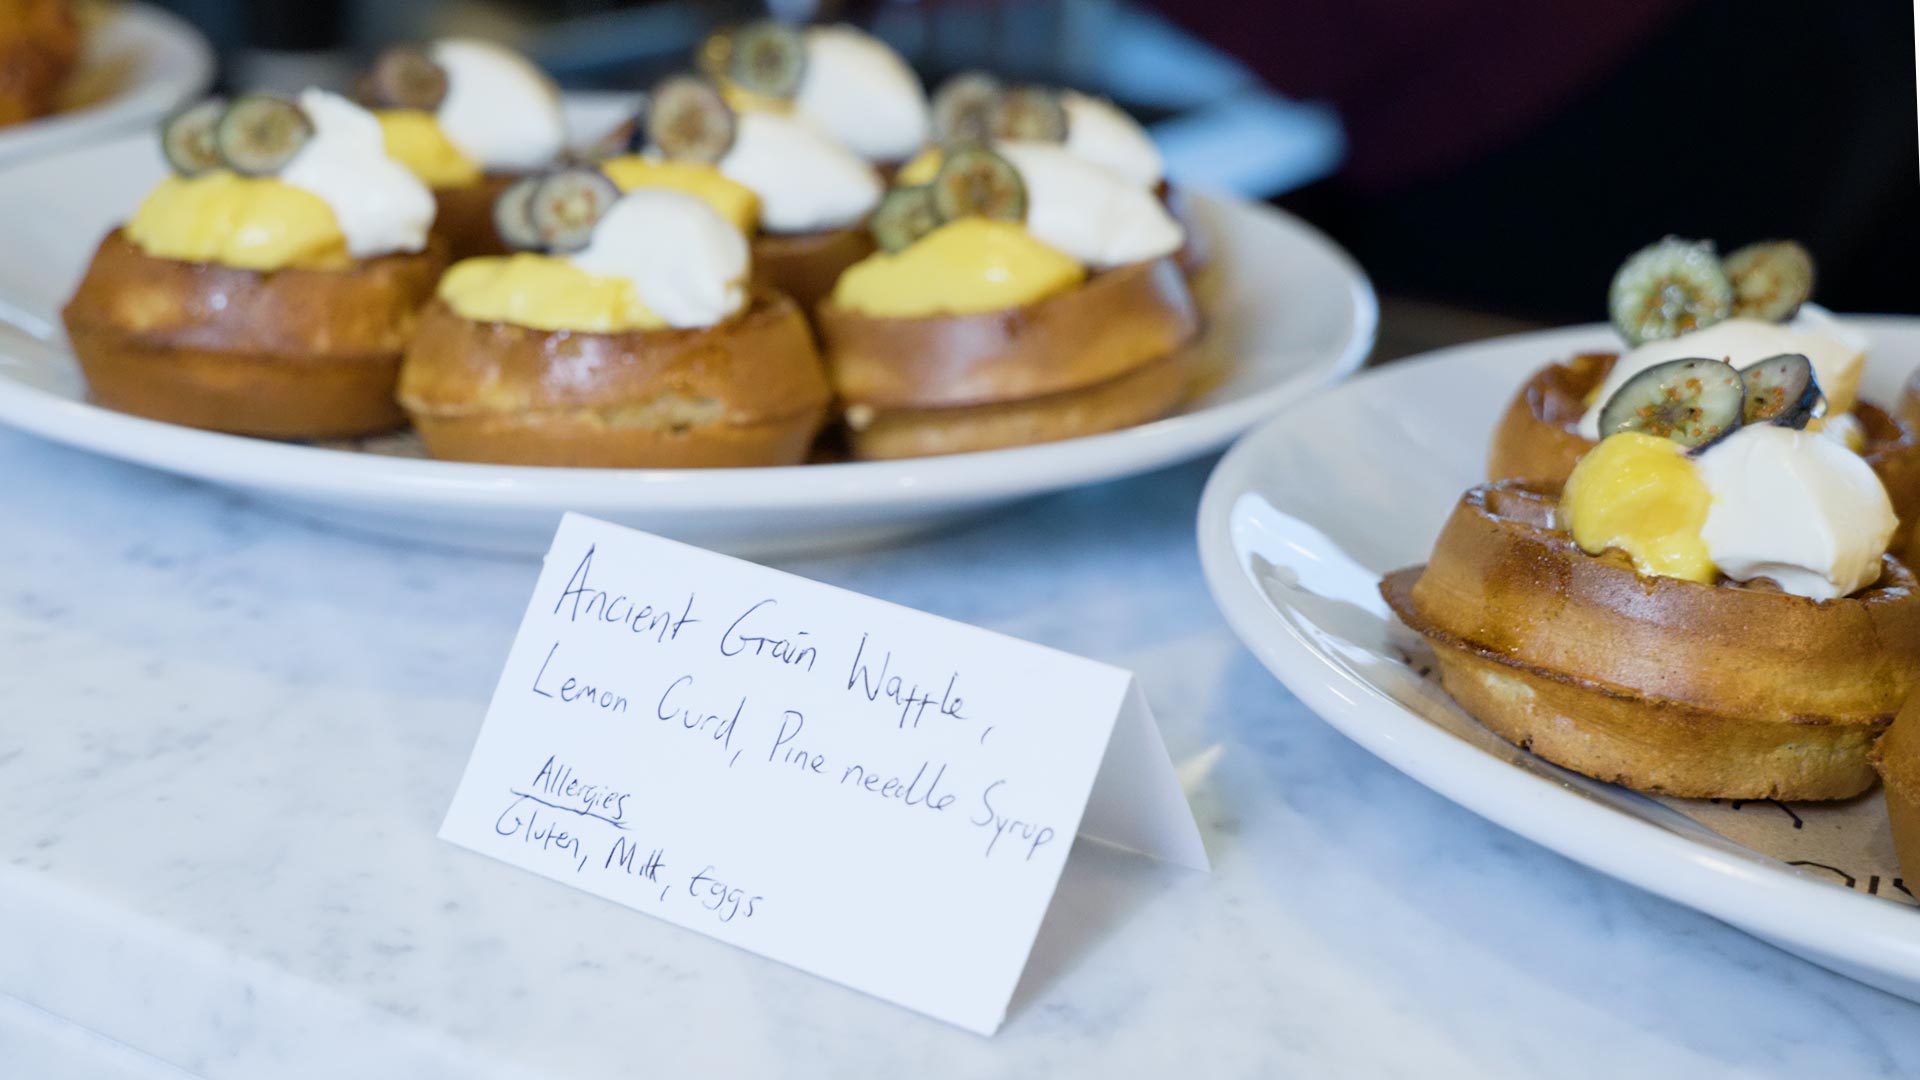 Ancient Grain Waffle,
Lemon Curd, Pine needle Syrup
Allergies
Gluten, Milk, Eggs